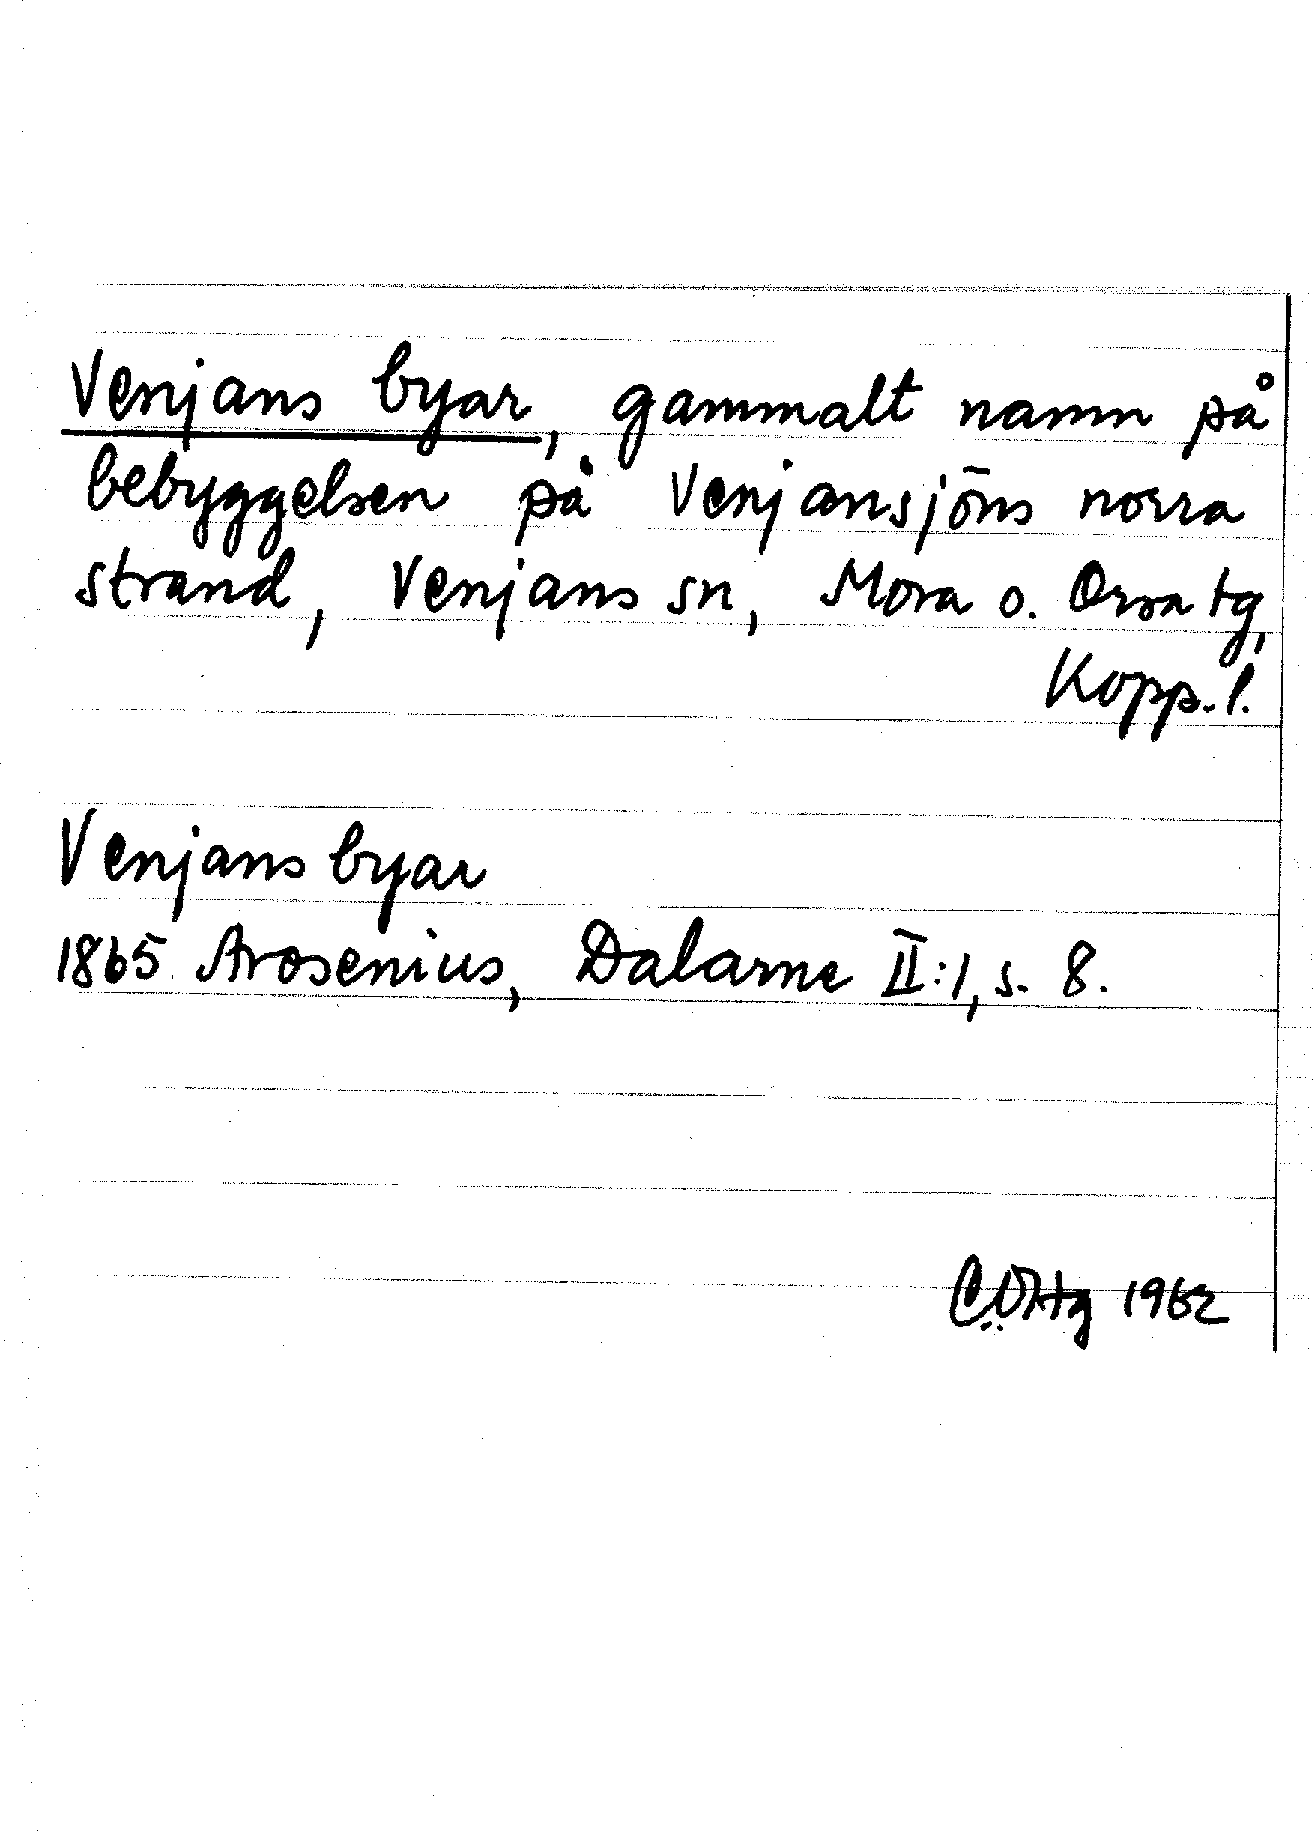 Venjans byar, gammalt namn på
bebyggelsen på Venjansjöns norra
strand, Venjans sn, Mora o. Orsa tg,
Kopp. l.
Venjans byar
1865 Arosenius, Dalarne II:1, s. 8.
1962